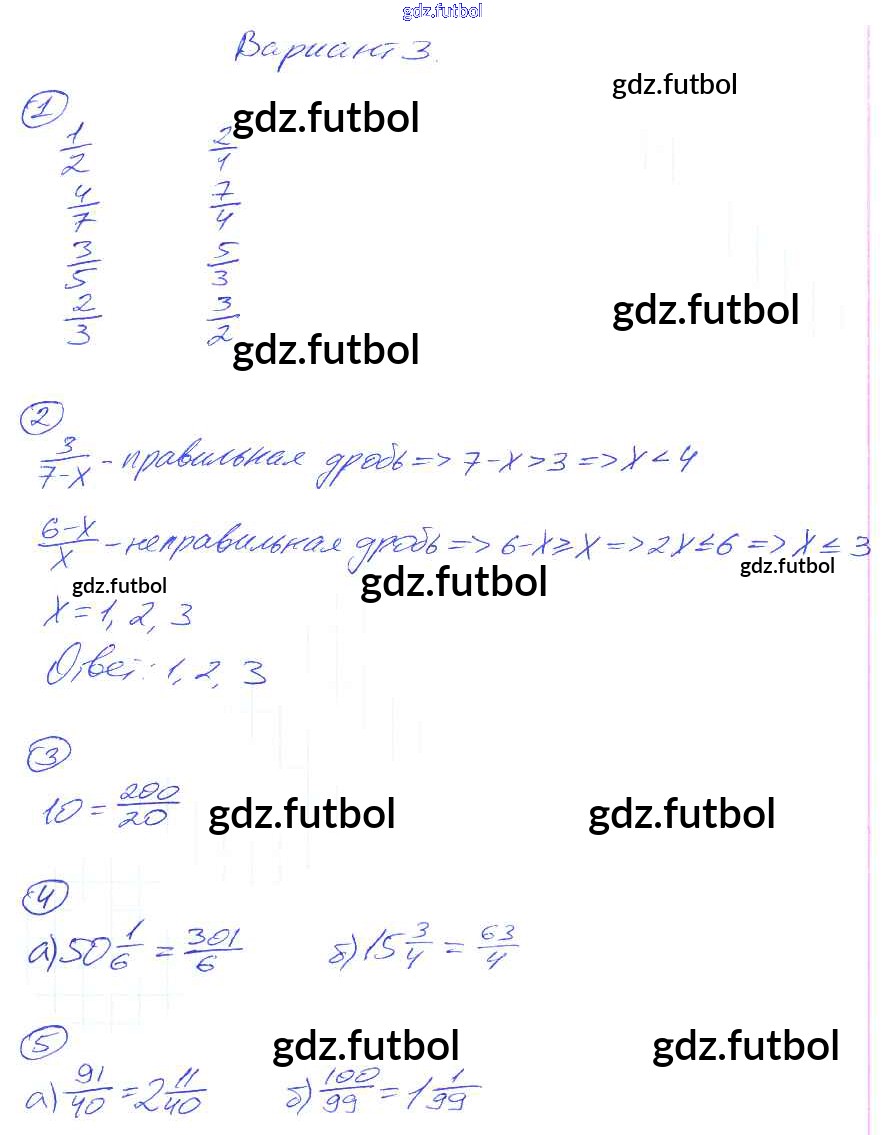 gdz.futbol
Вариант 3.
gdz.futbol
① gdz.futbol
1/2 2/1
4/7 7/4
3/5 5/3
gdz.futbol
2/3 3/2
gdz.futbol
②
3/(7-x) - правильная дробь => 7-x>3 => x<4
(6-x)/x - неправильная дробь => 6-x≥x => 2x≤6 => x≤3
gdz.futbol gdz.futbol gdz.futbol
x=1, 2, 3
Ответ: 1, 2, 3
③
10 = 200/20 gdz.futbol gdz.futbol
④
а) 50 1/6 = 301/6 б) 15 3/4 = 63/4
⑤ gdz.futbol gdz.futbol
а) 91/40 = 2 11/40 б) 100/99 = 1 1/99